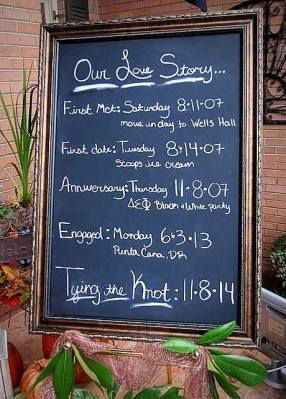 Our Love Story...
First Met: Saturday 8-11-07
move in day to Wells Hall
First date: Tuesday 8-14-07
Scoops ice cream
Anniversary: Thursday 11-8-07
ΔΣΦ Black & White party
Engaged: Monday 6-3-13
Punta Cana, DR
Tying the Knot: 11-8-14